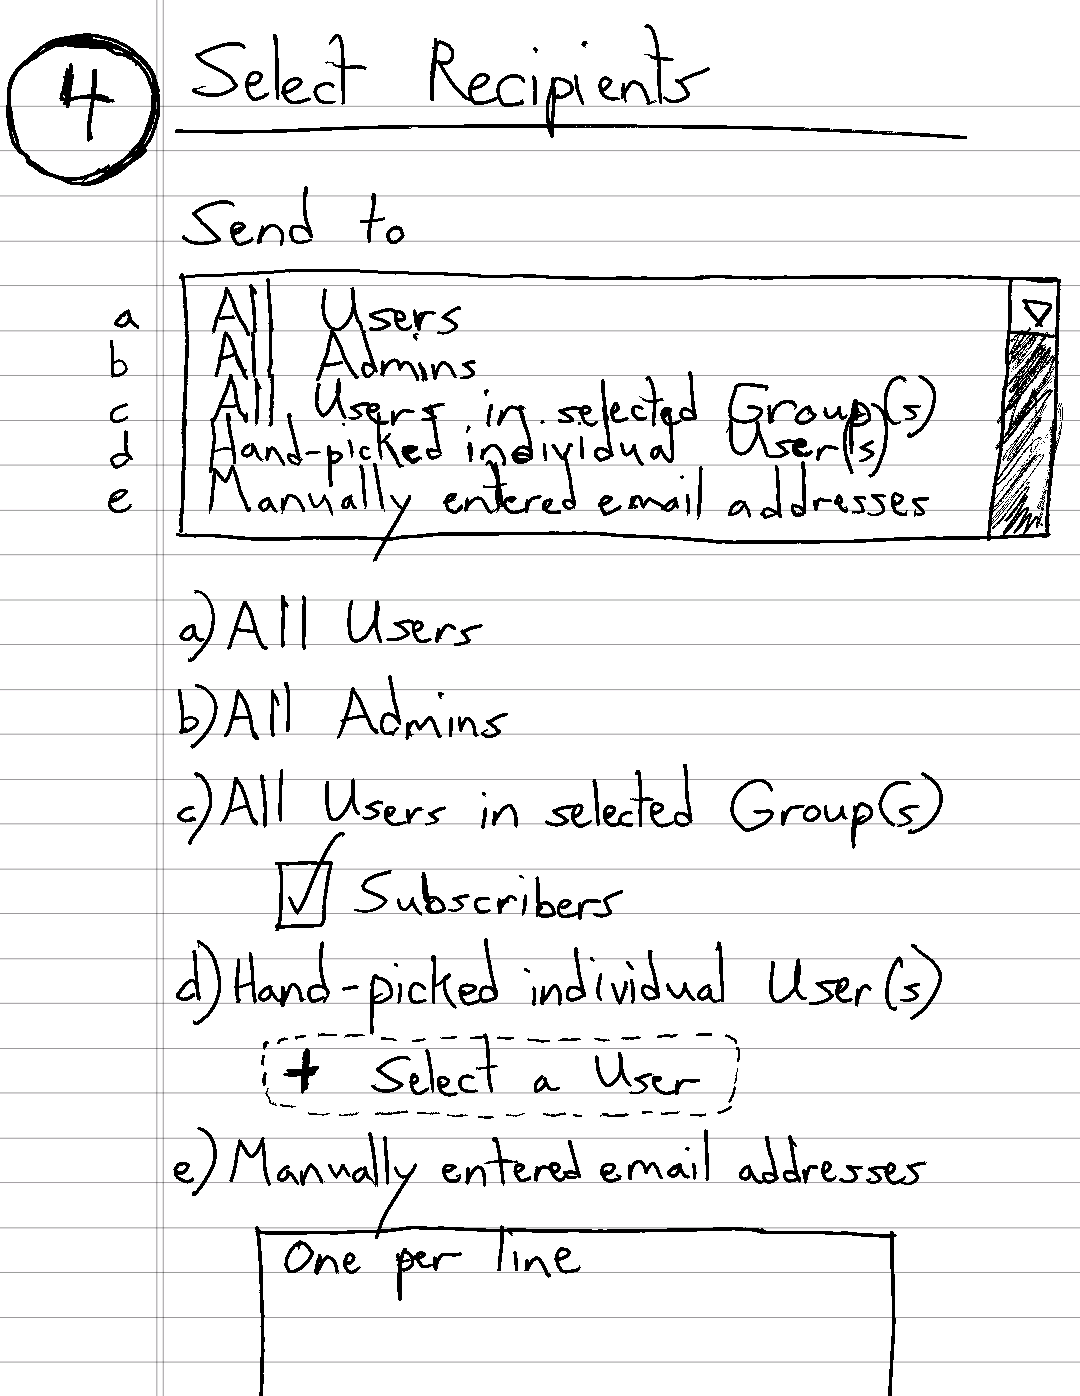 4 Select Recipients
Send to
a All Users
b All Admins
c All Users in selected Group(s)
d Hand-picked individual User(s)
e Manually entered email addresses
a) All Users
b) All Admins
c) All Users in selected Group(s)
Subscribers
d) Hand-picked individual User(s)
+ Select a User
e) Manually entered email addresses
One per line